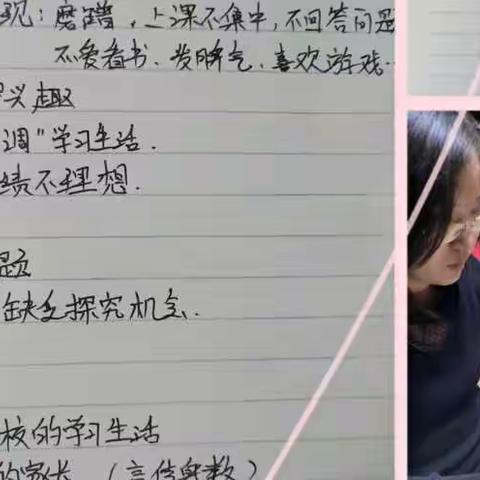 现：磨蹭，上课不集中，不回答问题
不爱看书、发脾气、喜欢游戏…
兴趣
调"学习生活．
绩不理想．
题
缺乏探究机会．
校的学习生活
的家长（言传身教）